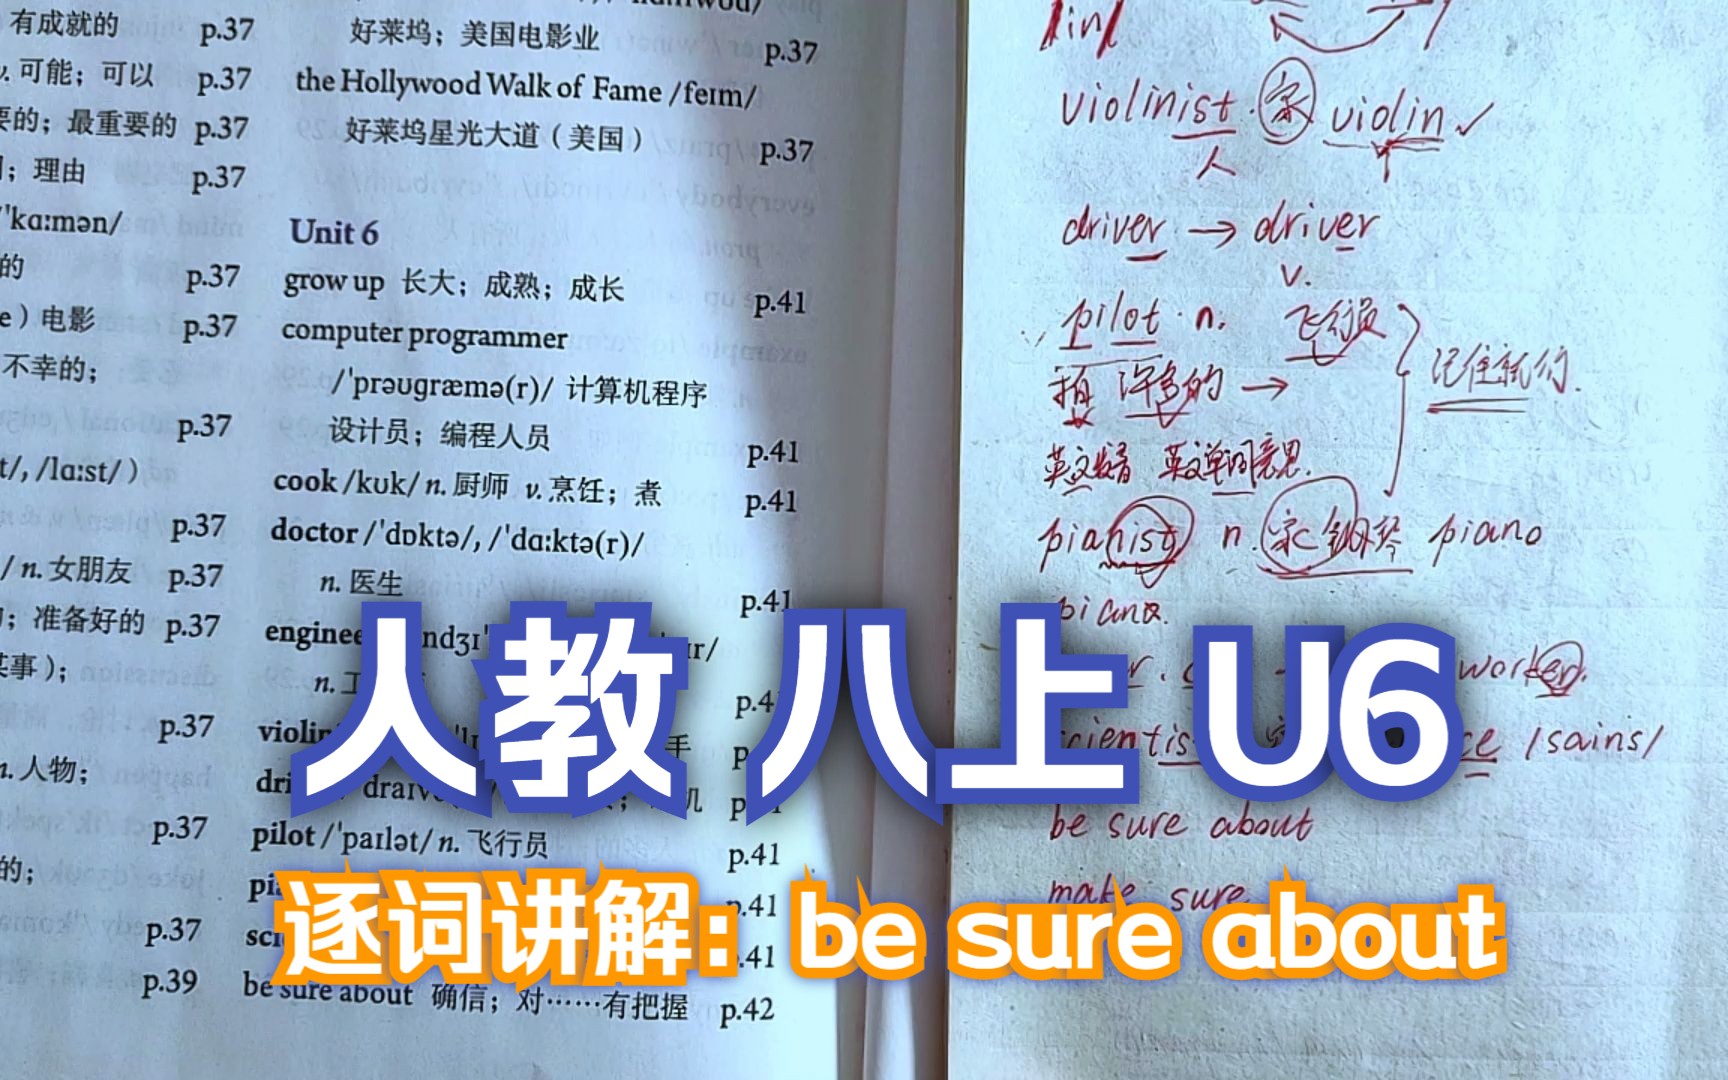 有成就的 p.37
v.可能；可以 p.37
要的；最重要的 p.37
；理由 p.37
/ˈkɑːmən/
的 p.37
e）电影 p.37
不幸的；
p.37
t/, /lɑːst/）
p.37
/ n.女朋友 p.37
；准备好的 p.37
某事）；
p.37
n.人物；
p.37
的；
p.37
p.39
好莱坞；美国电影业 p.37
the Hollywood Walk of Fame /feɪm/
好莱坞星光大道（美国） p.37
Unit 6
grow up 长大；成熟；成长 p.41
computer programmer
/ˈprəʊɡræmə(r)/ 计算机程序
设计员；编程人员 p.41
cook /kʊk/ n.厨师 v.烹饪；煮 p.41
doctor /ˈdɒktə/, /ˈdɑːktə(r)/
n.医生 p.41
n.
p.4
手
pilot /ˈpaɪlət/ n.飞行员 p.41
p.41
.41
be sure about 确信；对……有把握 p.42
/lin/
violinist 家 violin ✓
人
driver → driver
v.
pilot · n. 飞行员
拍 许多的 → 记住就行.
英文发音 英文单词意思.
pianist n. 家 钢琴 piano
piano.
worker.
/sains/
be sure about
make sure
人教 八上 U6
逐词讲解：be sure about